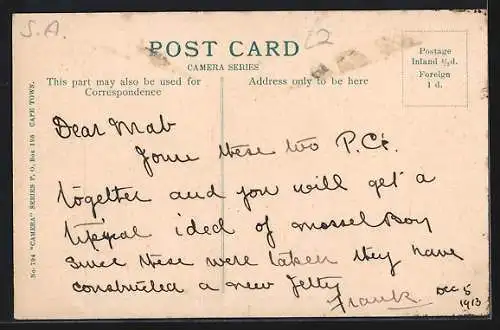 S.A.
POST CARD
£2
CAMERA SERIES
This part may also be used for
Correspondence
Address only to be here
Postage
Inland ½d.
Foreign
1 d.
No 794 "CAMERA" SERIES P. O. Box 198 CAPE TOWN.
Dear Mab
Join these two P.Cs.
together and you will get a
typical idea of Mossel Bay
since these were taken they have
constructed a new Jetty
Frank
Dec 5
1913